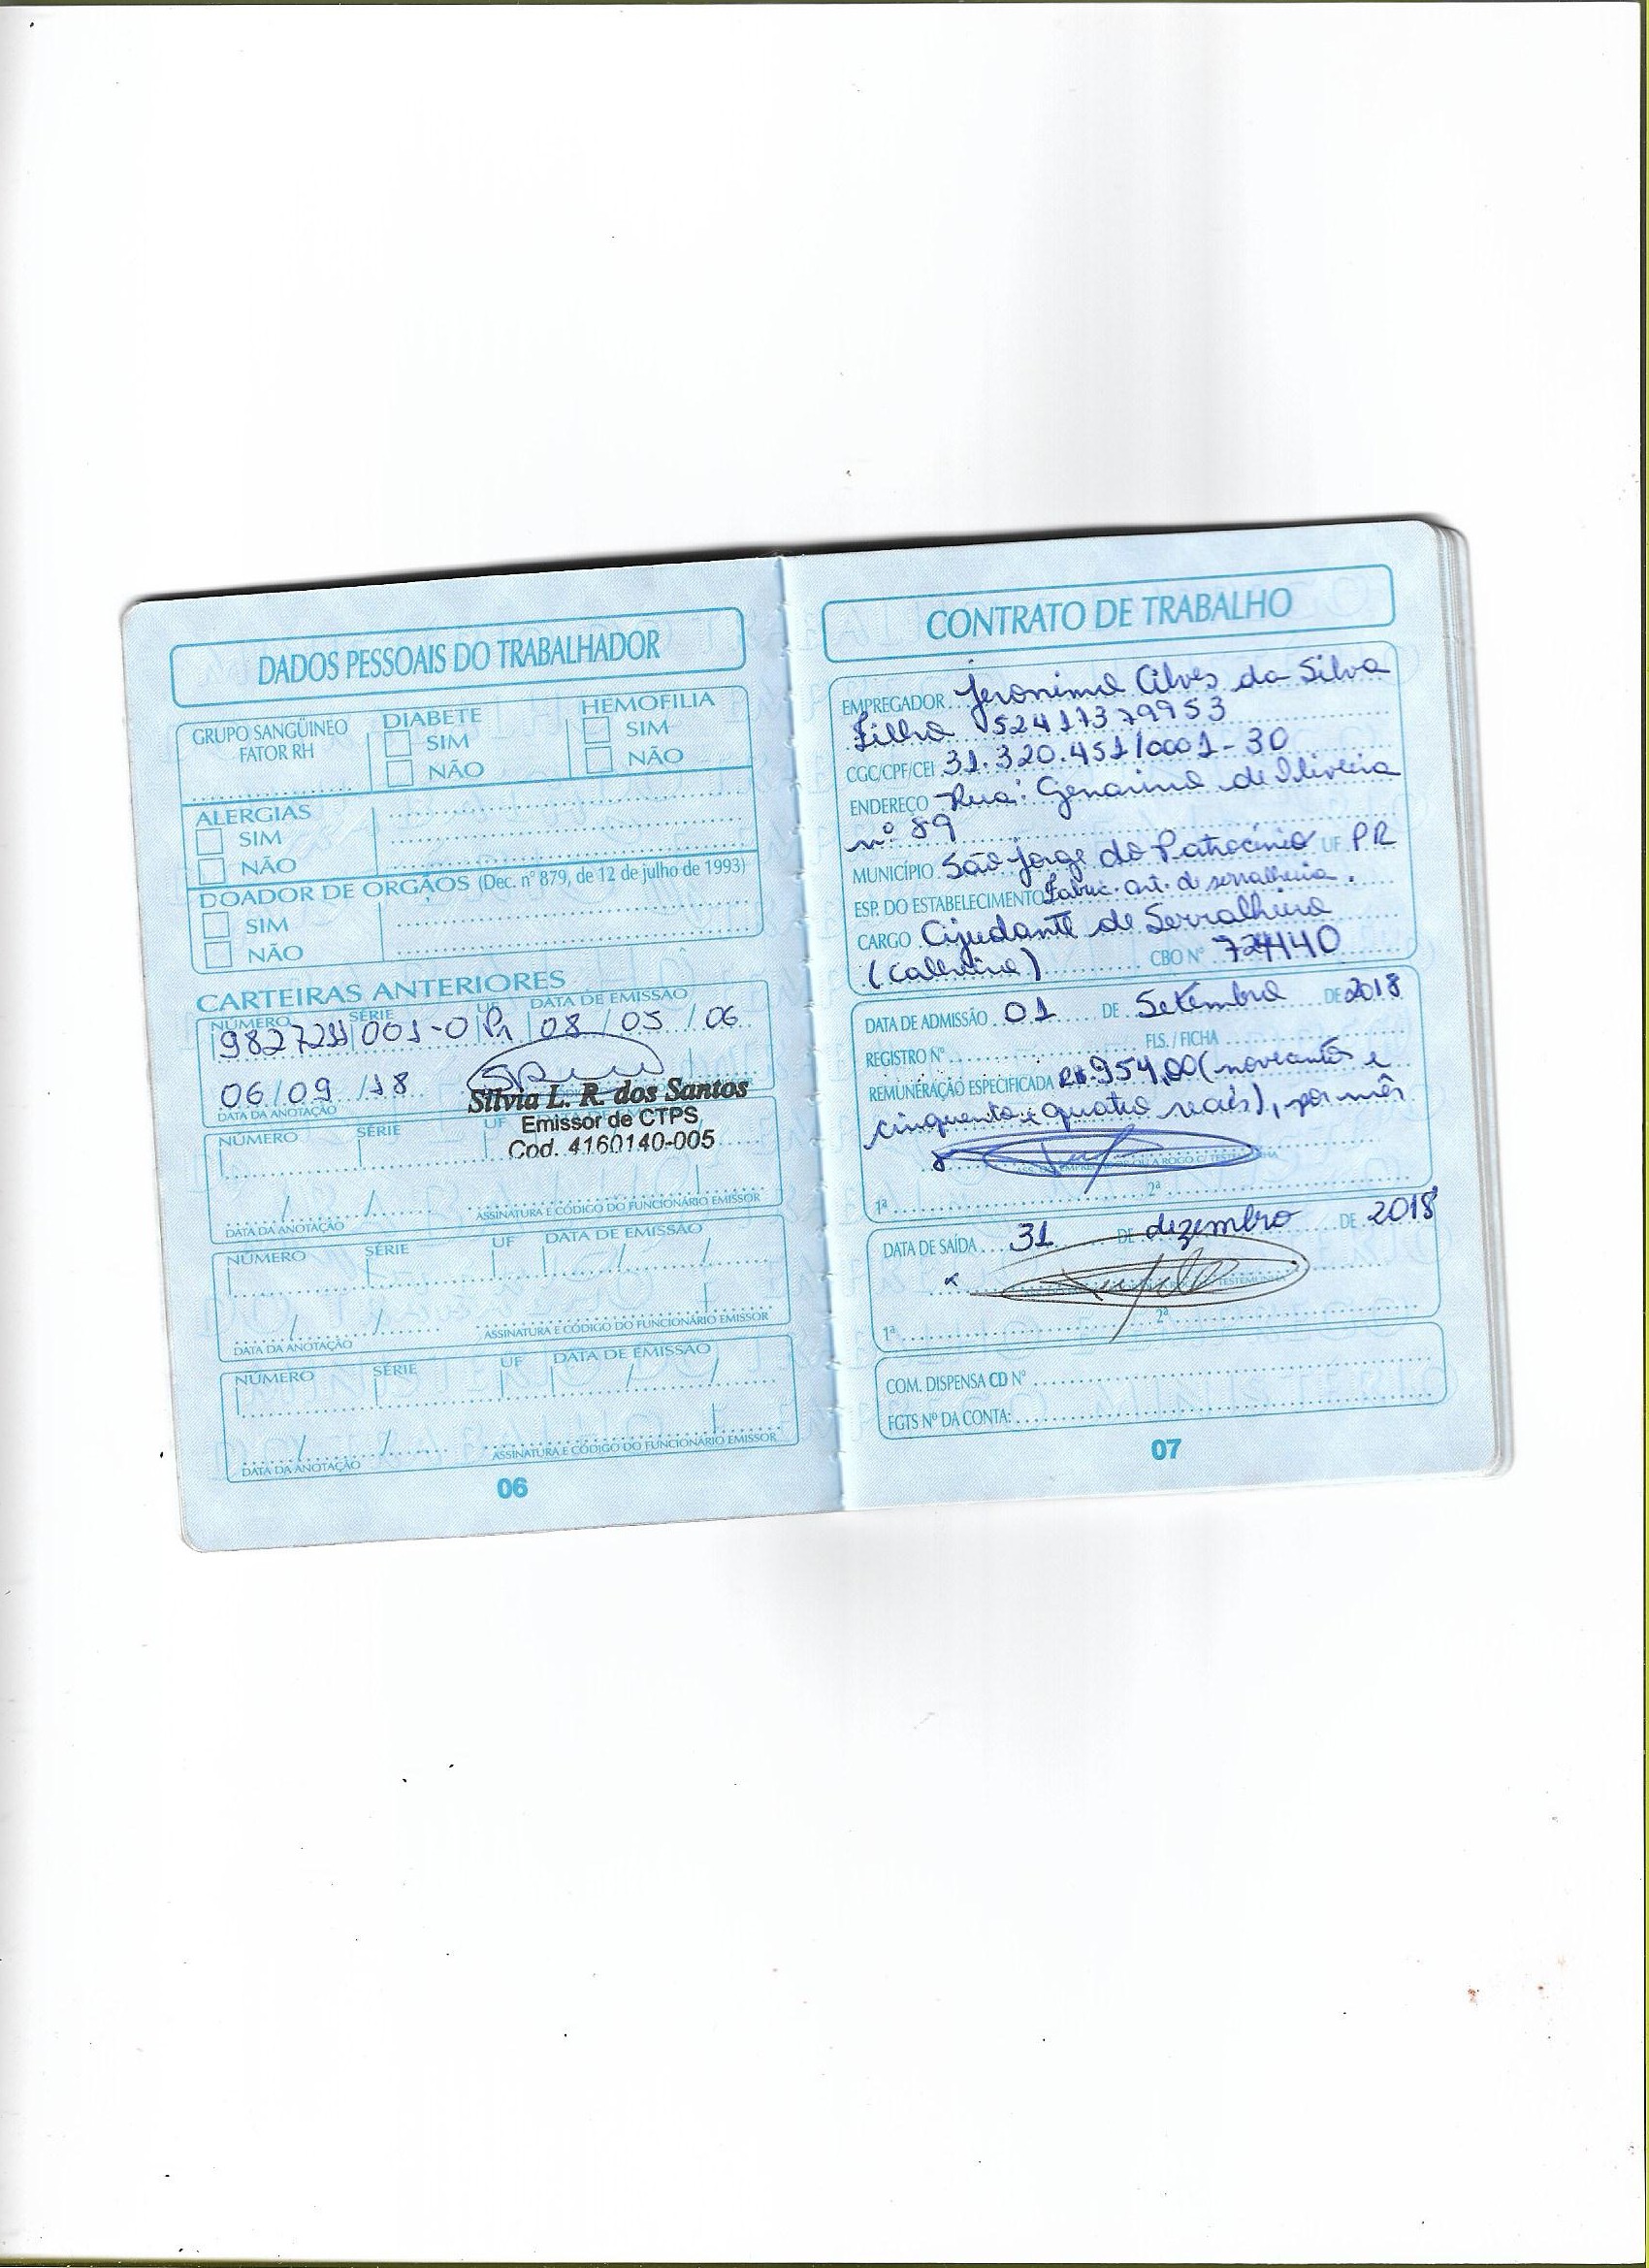 DADOS PESSOAIS DO TRABALHADOR
GRUPO SANGÜINEO
FATOR RH
DIABETE
SIM
NÃO
HEMOFILIA
SIM
NÃO
ALERGIAS
SIM
NÃO
DOADOR DE ORGÃOS (Dec. nº 879, de 12 de julho de 1993)
SIM
NÃO
CARTEIRAS ANTERIORES
NÚMERO SÉRIE UF DATA DE EMISSÃO
001-0 Pr 08/05/06
06/09/18
DATA DA ANOTAÇÃO
Silvia L. R. dos Santos
Emissor de CTPS
Cod. 4160140-005
NÚMERO SÉRIE UF
DATA DA ANOTAÇÃO ASSINATURA E CÓDIGO DO FUNCIONÁRIO EMISSOR
NÚMERO SÉRIE UF DATA DE EMISSÃO
DATA DA ANOTAÇÃO ASSINATURA E CÓDIGO DO FUNCIONÁRIO EMISSOR
NÚMERO SÉRIE UF DATA DE EMISSÃO
DATA DA ANOTAÇÃO ASSINATURA E CÓDIGO DO FUNCIONÁRIO EMISSOR
06
CONTRATO DE TRABALHO
EMPREGADOR Jeronimo Alves da Silva
Filho 52417379953
CGC/CPF/CEI 31.320.451/0001-30
ENDEREÇO Rua: Genarino de Oliveira
nº 89
MUNICÍPIO São Jorge do Patrocínio UF PR
ESP. DO ESTABELECIMENTO Fabric. art. de serralheria.
CARGO Ajudante de Serralheiro
(Calheiro) CBO Nº 724440
DATA DE ADMISSÃO 01 DE Setembro DE 2018
REGISTRO Nº FLS. / FICHA
REMUNERAÇÃO ESPECIFICADA R$ 954,00 (novecentos e
cinquenta e quatro reais), por mês
1ª 2ª
DATA DE SAÍDA 31 DE dezembro DE 2018
1ª 2ª
COM. DISPENSA CD Nº
FGTS Nº DA CONTA:
07